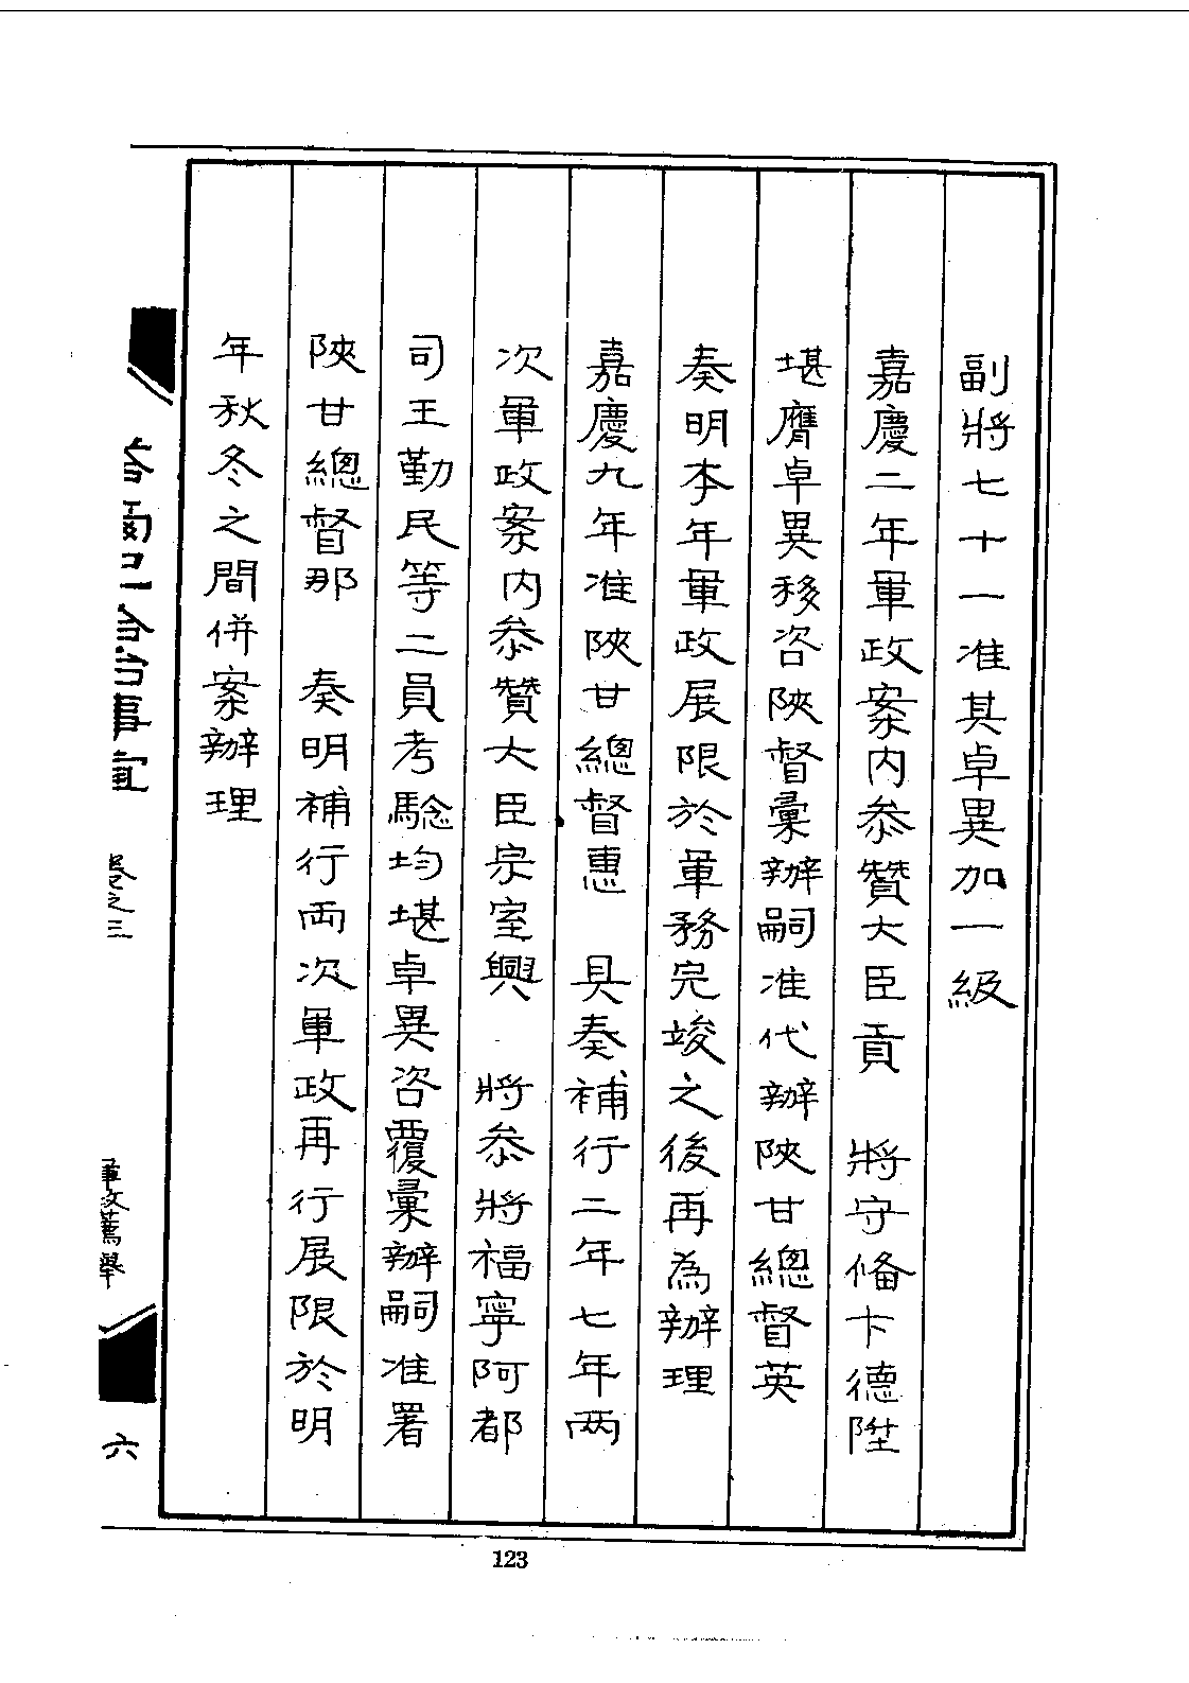 副將七十一准其卓異加一級
嘉慶二年軍政案內叅贊大臣貢　將守俻卞德陞
堪膺卓異移咨陝督彙辦嗣准代辦陝甘總督英
奏明本年軍政展限於軍務完竣之後再為辦理
嘉慶九年准陝甘總督惠　具奏補行二年七年兩
次軍政案內叅贊大臣宗室興　將叅將福寧阿都
司王勤民等二員考騐均堪卓異咨覆彙辦嗣准署
陝甘總督那　奏明補行両次軍政再行展限於明
年秋冬之間併案辦理
事宜
卷之三
軍政薦舉
六
123